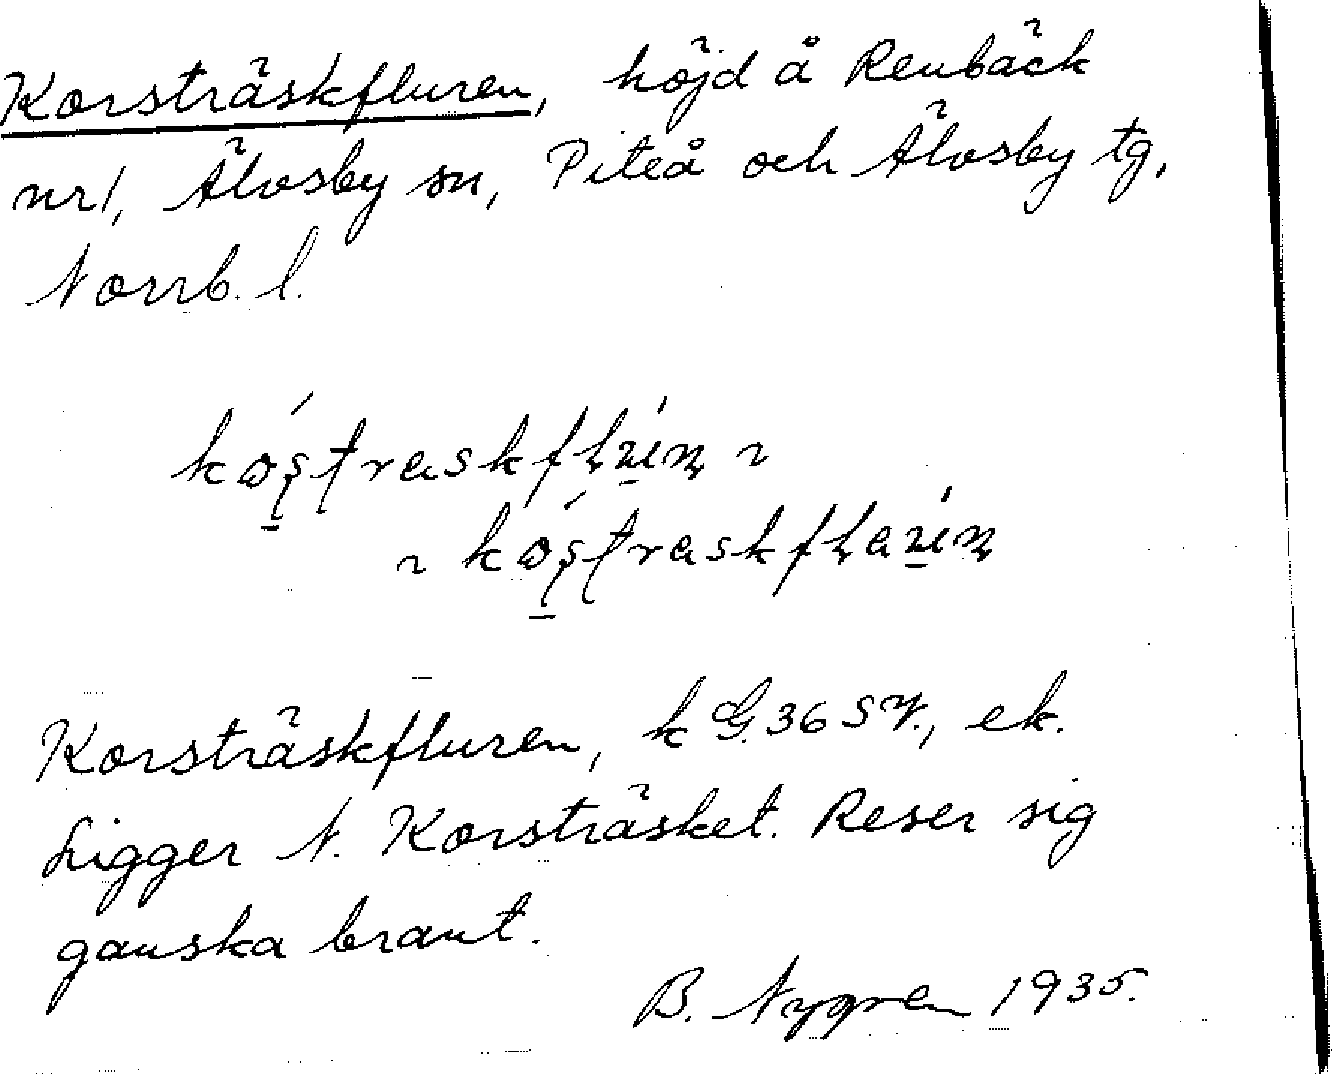 Korsträskfluren, höjd å Renbäck
nr 1, Älvsby sn, Piteå och Älvsby tg,
Norrb. l.
Korsträskfluren, k G. 36 SV., ek.
Ligger N. Korsträsket. Reser sig
ganska brant.
B. Nygren 1935.